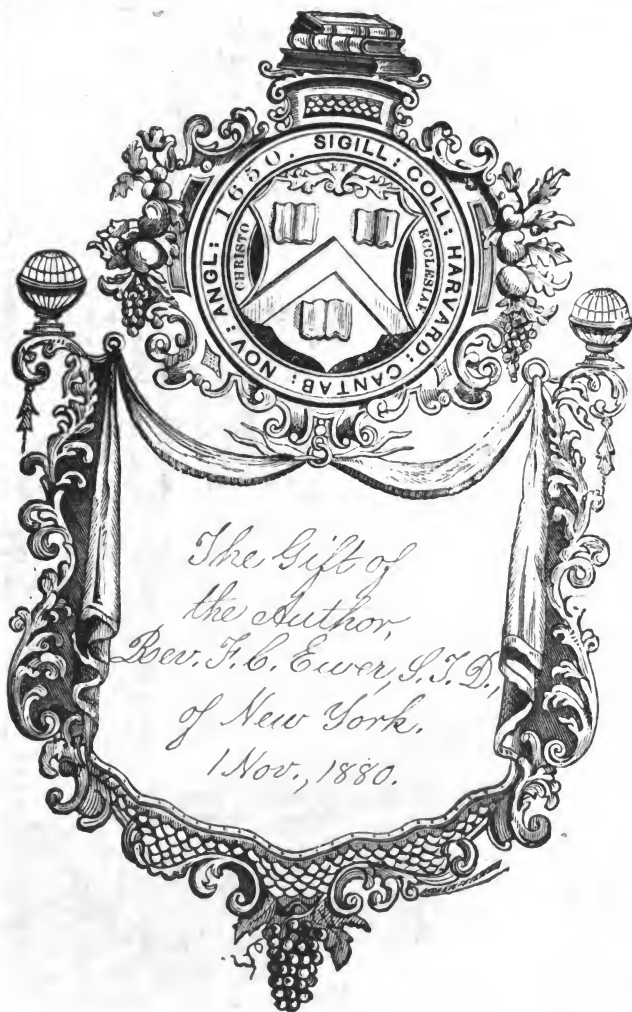 SIGILL: COLL: HARVARD: CANTAB: NOV: ANGL: 1650.
CHRISTO
ET
ECCLESIAE
The Gift of
the Author,
Rev. F. C. Ewer, S. T. D.,
of New York.
1 Nov., 1880.